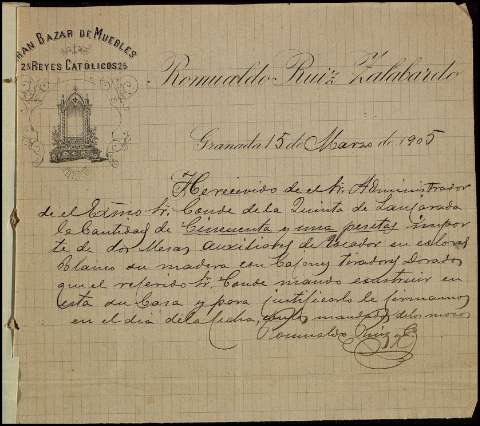 GRAN BAZAR DE MUEBLES
REYES CATÓLICOS 25
Romualdo Ruiz Zalabardo
Granada 15 de Marzo de 1905
He recivido de el Sr. Administrador
de el Exmo Sr. Conde de la Quinta de Lanjarada
la Cantidad de Cincuenta y una pesetas impor
te de dos Mesas auxiliares de tocador en colores
blanco su madera con Cajones tiradores Dorados
que el referido Sr. Conde mando construir en
esta su Casa y para justificarlo le firmamos
en el dia de la fecha, de los mozos
Romualdo Ruiz y Cª